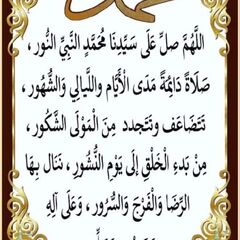 اللَّهُمَّ صَلِّ عَلَى سَيِّدِنَا مُحَمَّدٍ النَّبِيِّ النُّورِ ،
صَلَاةً دَائِمَةً مَدَى الْأَيَّامِ وَاللَّيَالِي وَالشُّهُورِ ،
تَتَضَاعَف وَتَتَجدد مِنَ الْمَوْلَى الشَّكُورِ ،
مِنْ بَدءِ الْخَلْقِ إِلَى يَوْمِ النُّشُورِ ، نَنَال بِهَا
الرِّضَا وَالْفَرَجَ وَالسُّرُور ، وَعَلَى آلِهِ